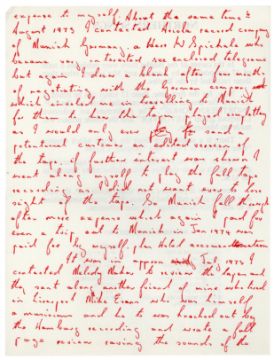 expense to myself. About the same time
August 1973 I contacted Ariola record company
of Munich Germany, a Herr W Spichala who
became very interested see enclosed telegrams
but again I drew blank after few months
of negotiating with the German company
which involved me in travelling to Munich
for them to hear the tape in good quality
as I would only ever send a
potential customer an edited version of
the tape if further interest was shown I
went along myself to play the full tape
recording as I did not want ever to lose
sight of the tape. So Munich fell through
after more expense which again I paid for
even a trip out to Munich in Jan 1974 was
paid for by myself plus Hotel accommodation
It was in approx July 1973 I
contacted Melody Maker to review the tapes and
they sent along another friend of mine who lived
in Liverpool Mike Evans who was himself
a musician and he to was knocked out by
the Hamburg recording and wrote a full
page review raving the sounds of the